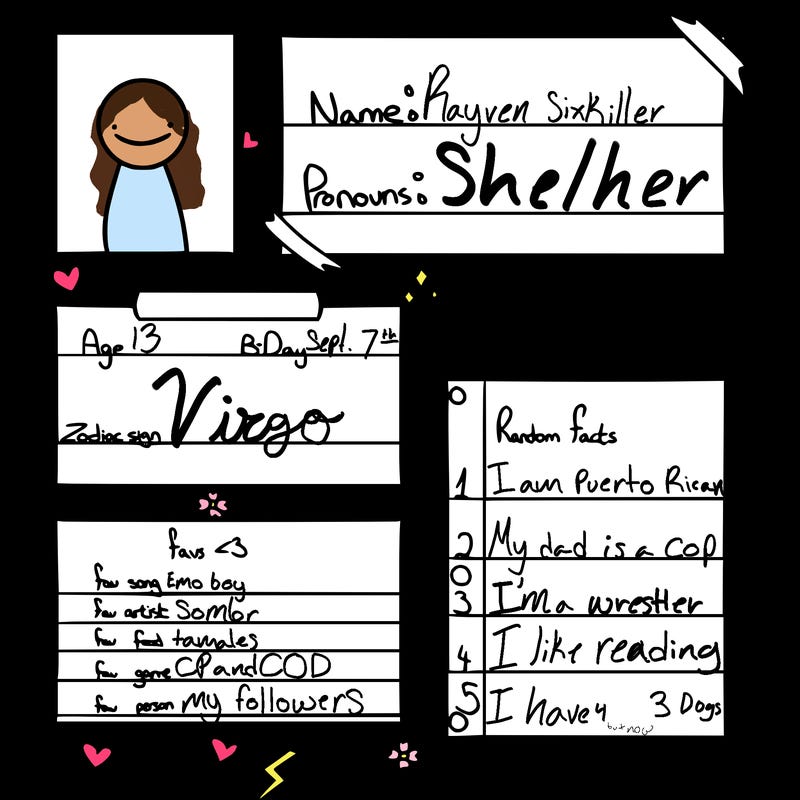 Name: Rayven SixKiller
Pronouns: She/her
Age 13 B-Day Sept. 7th
Zodiac sign Virgo
favs <3
fav song Emo boy
fav artist Sombr
fav food tamales
fav game CP and COD
fav person my followers
Random facts
1 I am Puerto Rican
2 My dad is a cop
3 I'm a wrestler
4 I like reading
5 I have 4 but now 3 Dogs